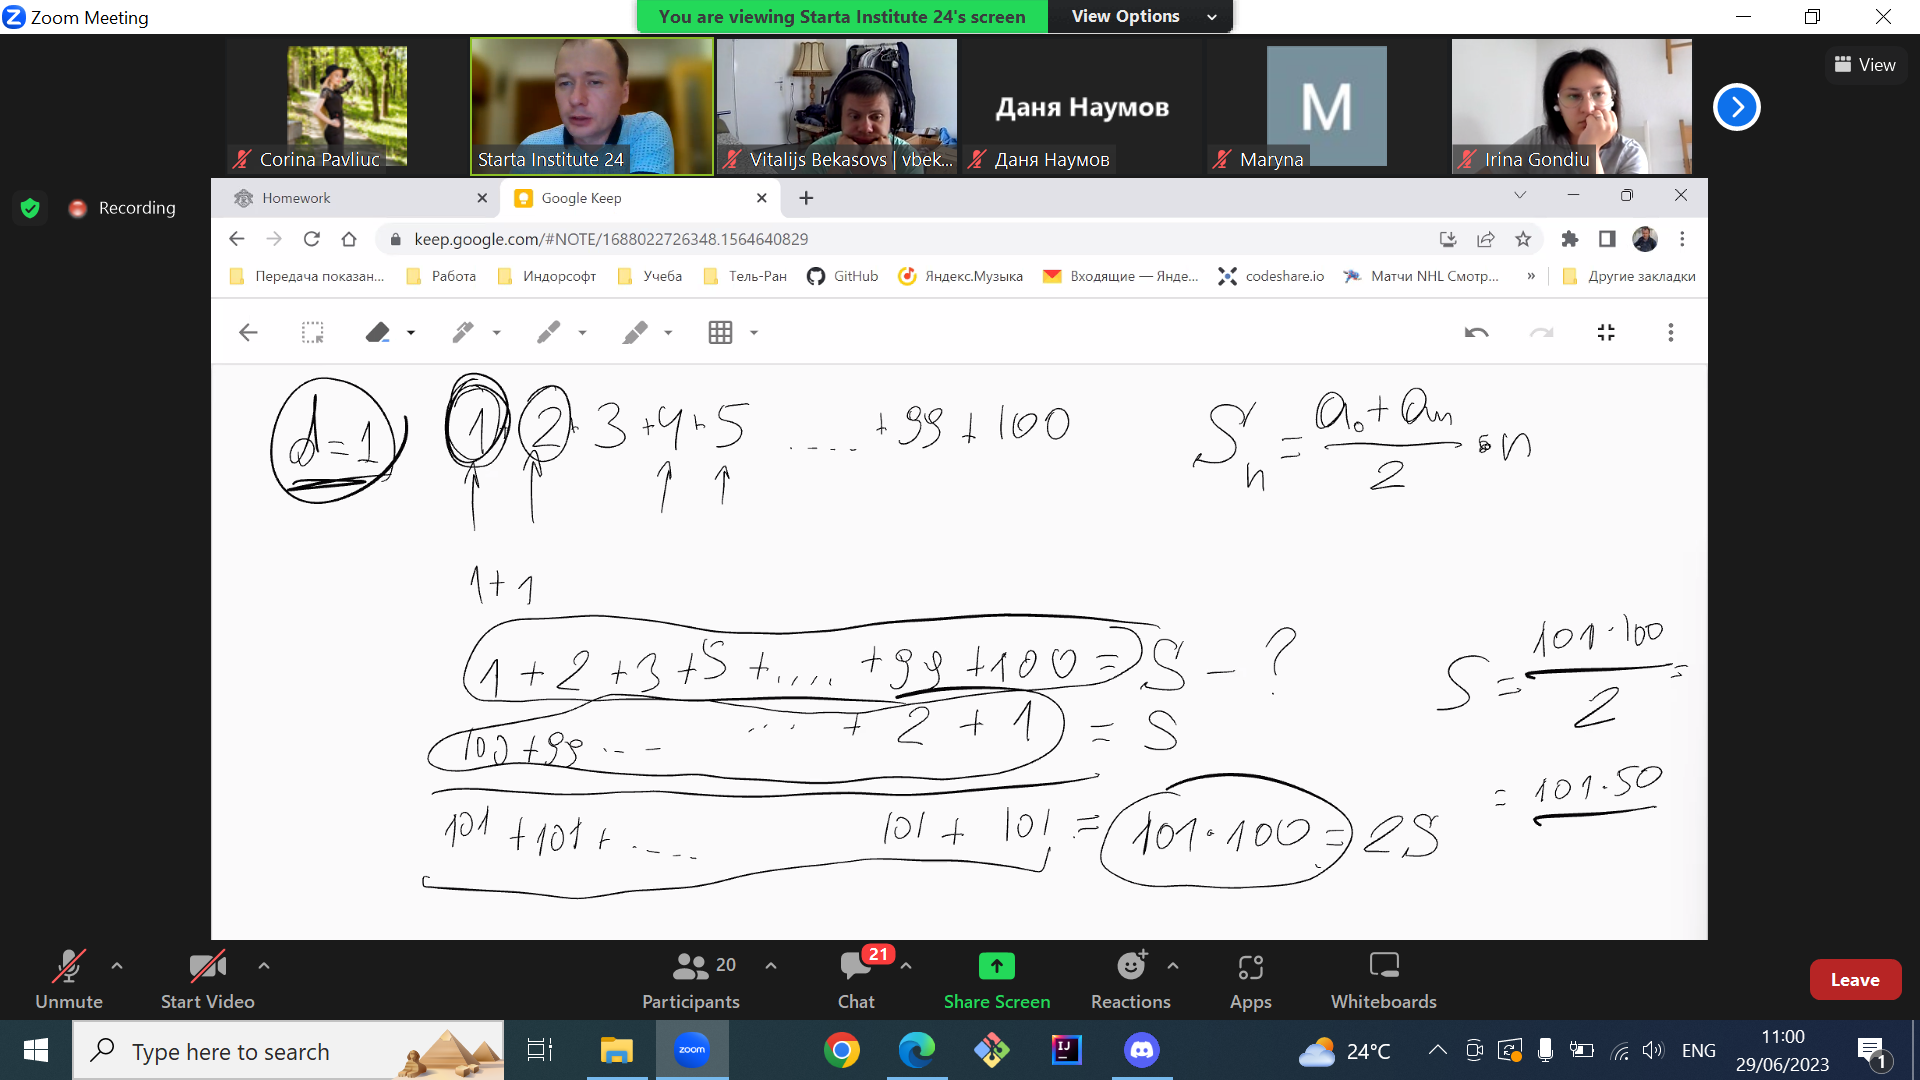 Zoom Meeting
You are viewing Starta Institute 24's screen
View Options
Corina Pavliuc
Starta Institute 24
Vitalijs Bekasovs | vbek...
Даня Наумов
Даня Наумов
M
Maryna
Irina Gondiu
View
Recording
Homework
Google Keep
keep.google.com/#NOTE/1688022726348.1564640829
Передача показан...
Работа
Индорсофт
Учеба
Тель-Ран
GitHub
Яндекс.Музыка
Входящие — Янде...
codeshare.io
Матчи NHL Смотр...
»
Другие закладки
d=1 1 + 2 + 3 + 4 + 5 ..... + 99 + 100
Sn = a₀ + an / 2 · n
1 + 1
1 + 2 + 3 + 5 + ..... + 99 + 100 = S – ?
100 + 99 ... ... + 2 + 1 = S
101 + 101 + ..... 101 + 101 = 101 · 100 = 2S
S = 101·100 / 2 =
= 101·50
Unmute
Start Video
Participants
20
Chat
21
Share Screen
Reactions
Apps
Whiteboards
Leave
Type here to search
zoom
IJ
24°C
ENG
11:00
29/06/2023
1